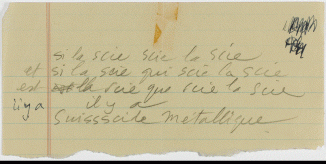 si la scie scie la scie
et si la scie qui scie la scie
est la scie que scie la scie
il y a il y a
Suissscide metallique